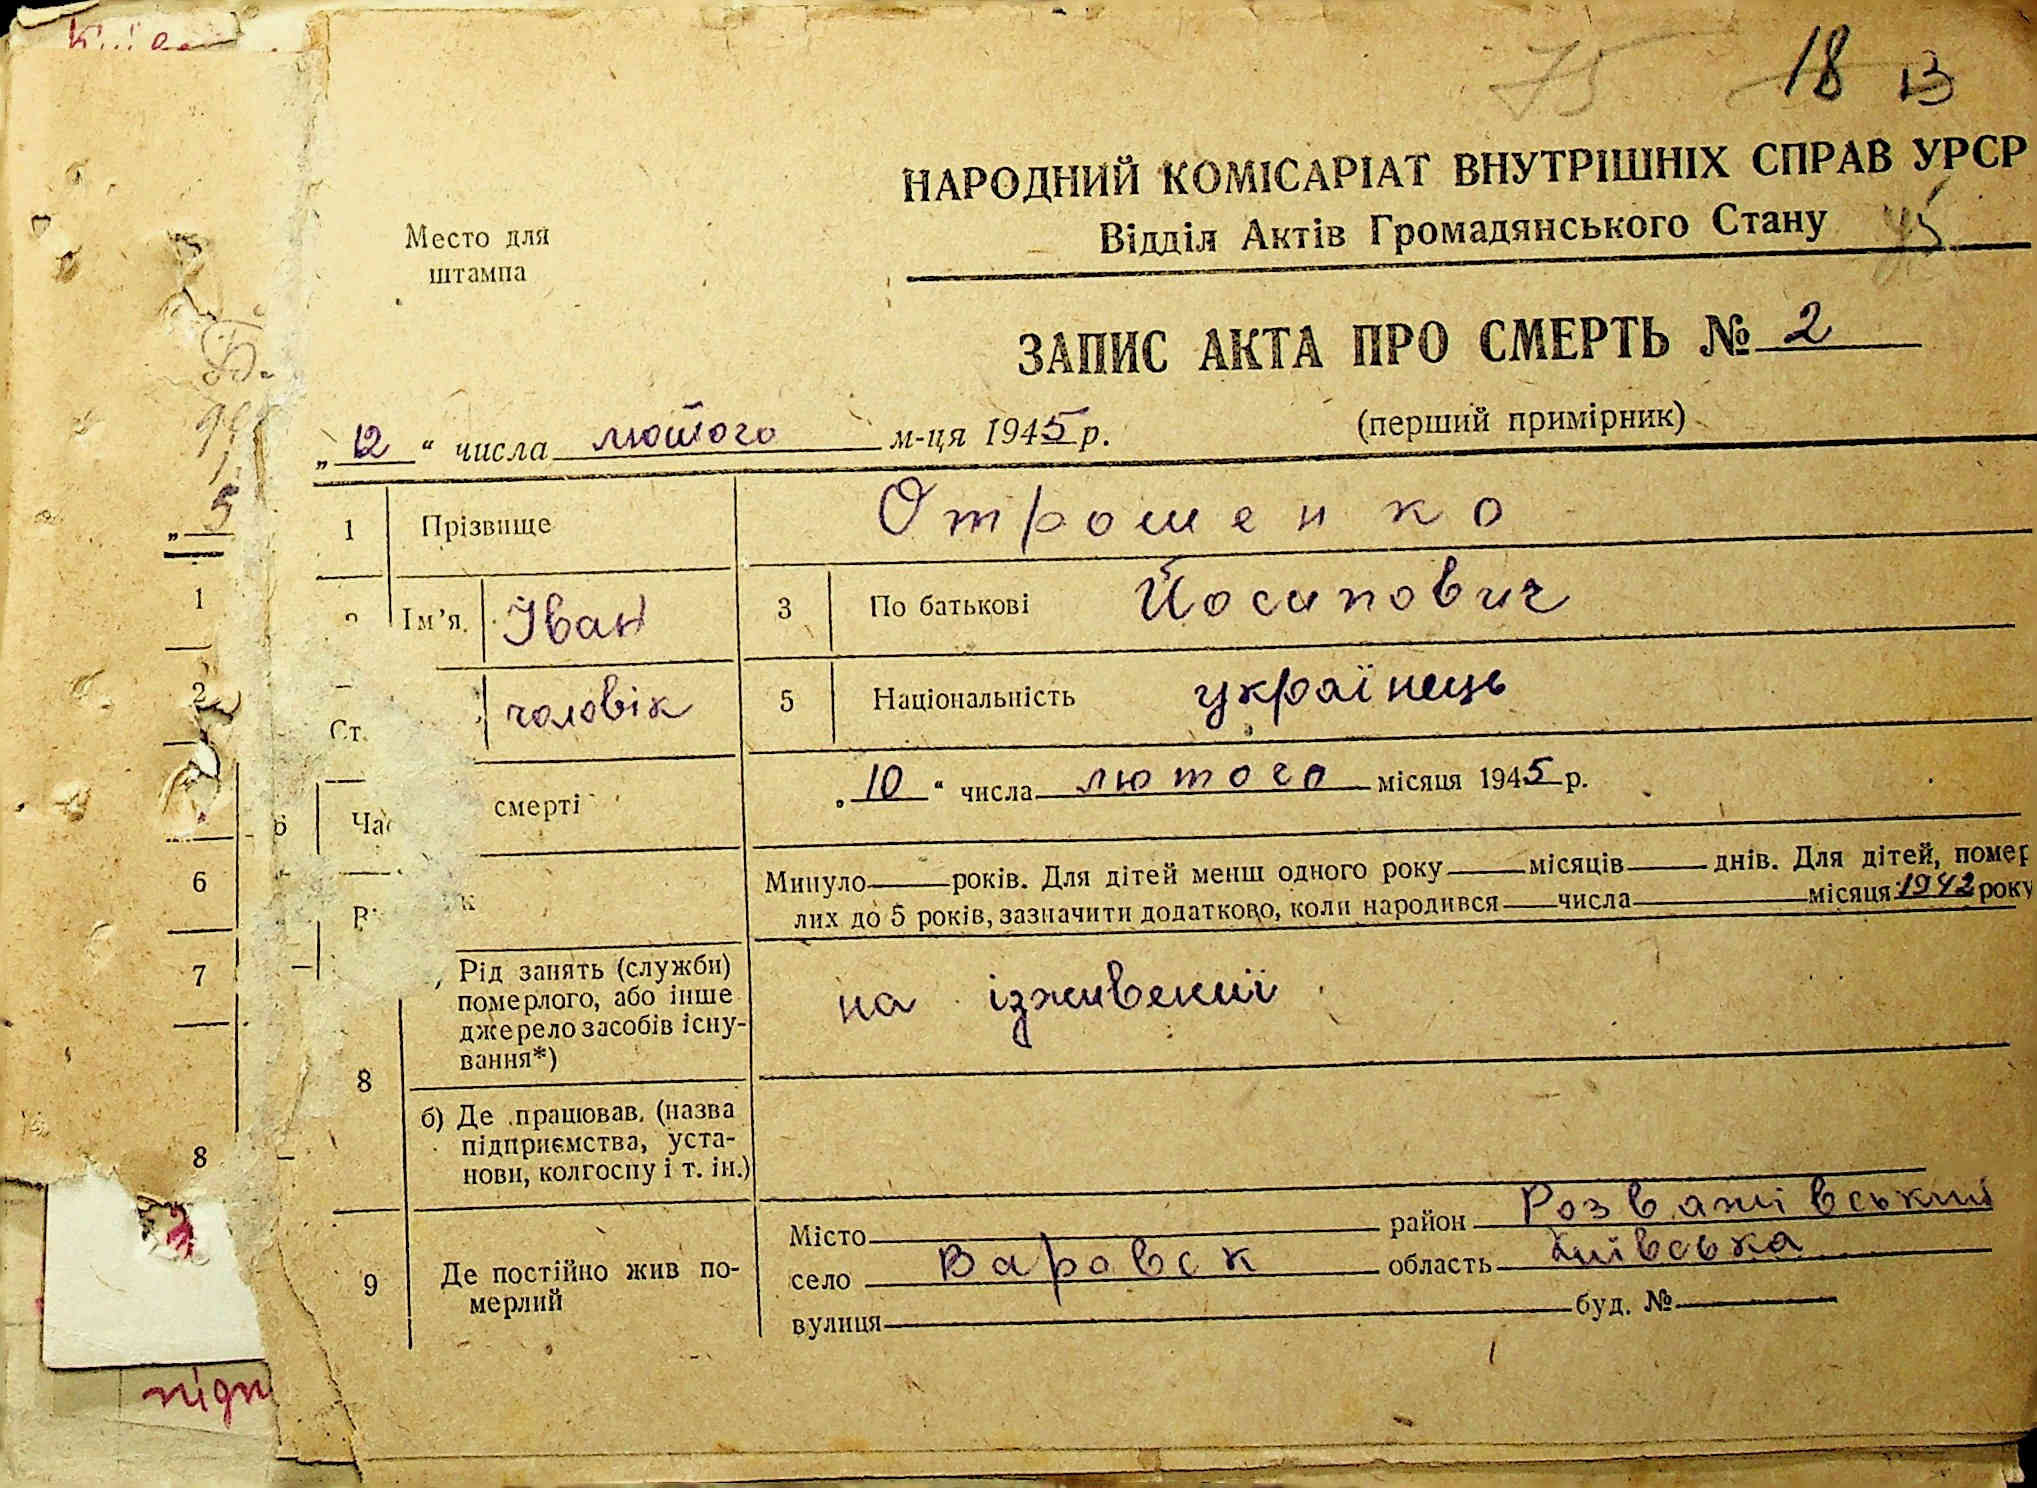 18 13
75
НАРОДНИЙ КОМІСАРІАТ ВНУТРІШНІХ СПРАВ УРСР
Відділ Актів Громадянського Стану
Место для
штампа
ЗАПИС АКТА ПРО СМЕРТЬ № 2
(перший примірник)
„12“ числа лютого м-ця 1945 р.
1 Прізвище Отрошенко
Ім'я Іван 3 По батькові Йосипович
Ст. чоловік 5 Національність українець
6 Час смерті „10“ числа лютого місяця 1945 р.
Минуло років. Для дітей менш одного року місяців днів. Для дітей, помер
лих до 5 років, зазначити додатково, коли народився числа місяця 1942 року
Рід занять (служби)
померлого, або інше
джерело засобів існу-
вання*)
на іждивекиї
8
б) Де працював, (назва
підприємства, уста-
нови, колгоспу і т. ін.)
9 Де постійно жив по-
мерлий
Місто район Розважівський
село Варовск область Київська
вулиця буд. №
5
1
2
6
7
8
підп